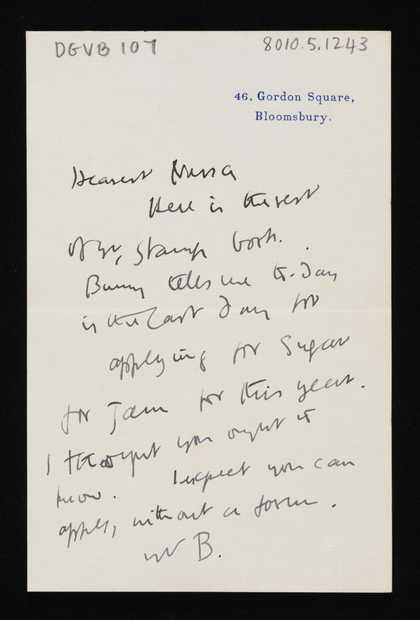 DGVB 107
8010.5.1243
46, Gordon Square,
Bloomsbury.
Dearest Nessa
Here is the rest
of yr, stamp book.
Bunny tells me to-day
is the last day for
applying for Sugar
for Jam for this year.
I thought you ought to
know. I expect you can
apply, without a form.
yr B.